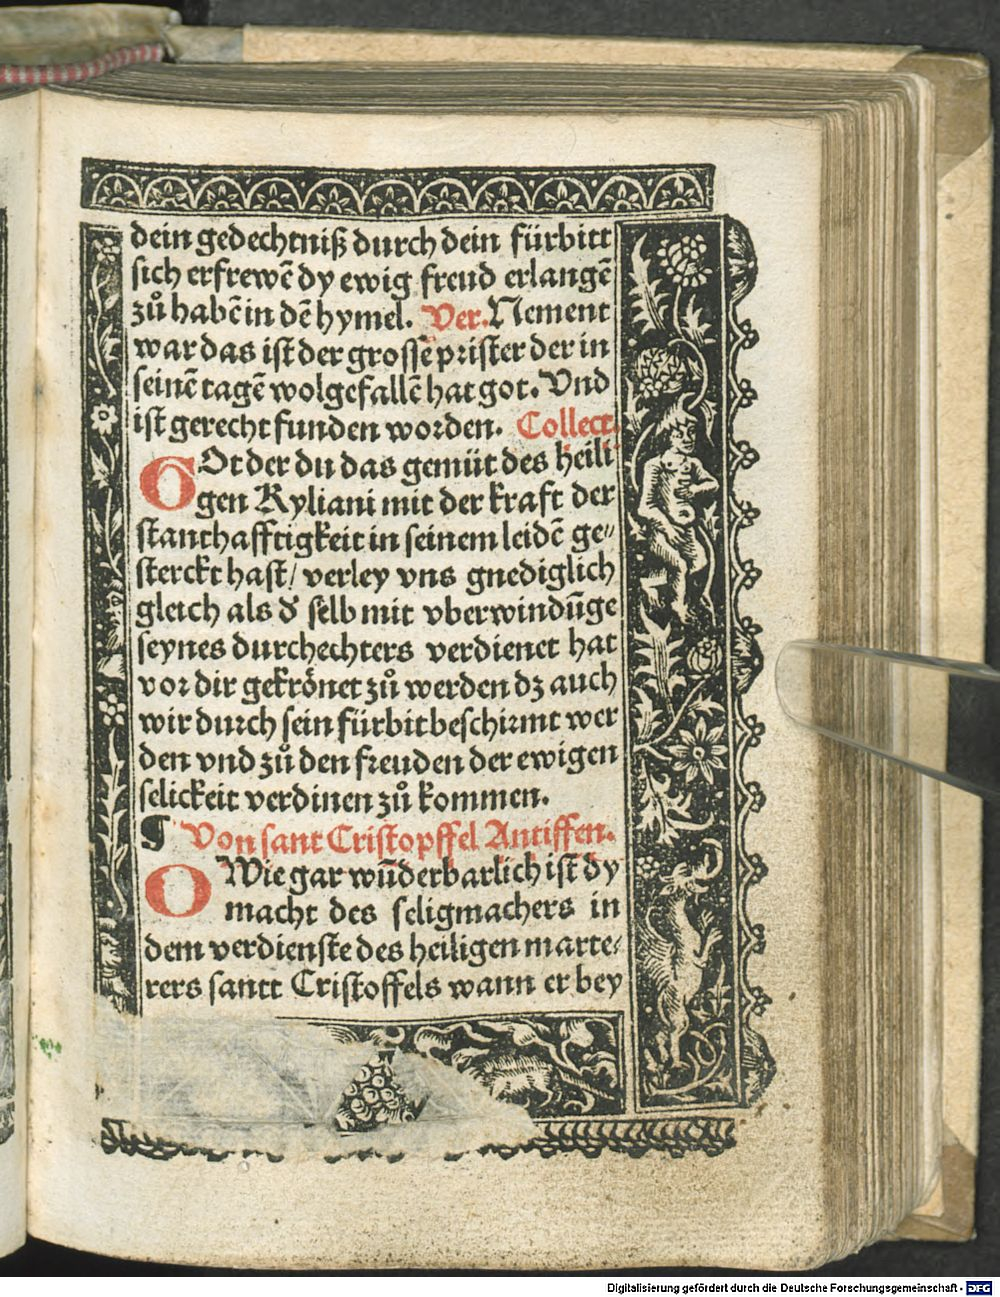 dein gedechtniß durch dein fürbitt
sich erfrewẽ dy ewig freud erlangẽ
zů habẽ in dẽ hymel. Ver. Nement
war das ist der grossẽ prister der in
seinẽ tagẽ wolgefallẽ hat got. Vnd
ist gerecht funden worden. Collect.
GOt der du das gemüt des heili
gen Kyliani mit der kraft der
stanthafftigkeit in seinem leidẽ ge⸗
sterckt hast/ verley vns gnediglich
gleich als d̕ selb mit vberwindũge
seynes durchechters verdienet hat
vor dir gekrönet zů werden dz auch
wir durch sein fürbit beschirmt wer
den vnd zů den freuden der ewigen
selickeit verdinen zů kommen.
¶ Von sant Cristopffel Antiffen.
O Wie gar wũderbarlich ist dy
macht des seligmachers in
dem verdienste des heiligen marte⸗
rers sanct Cristoffels wann er bey
Digitalisierung gefördert durch die Deutsche Forschungsgemeinschaft - DFG